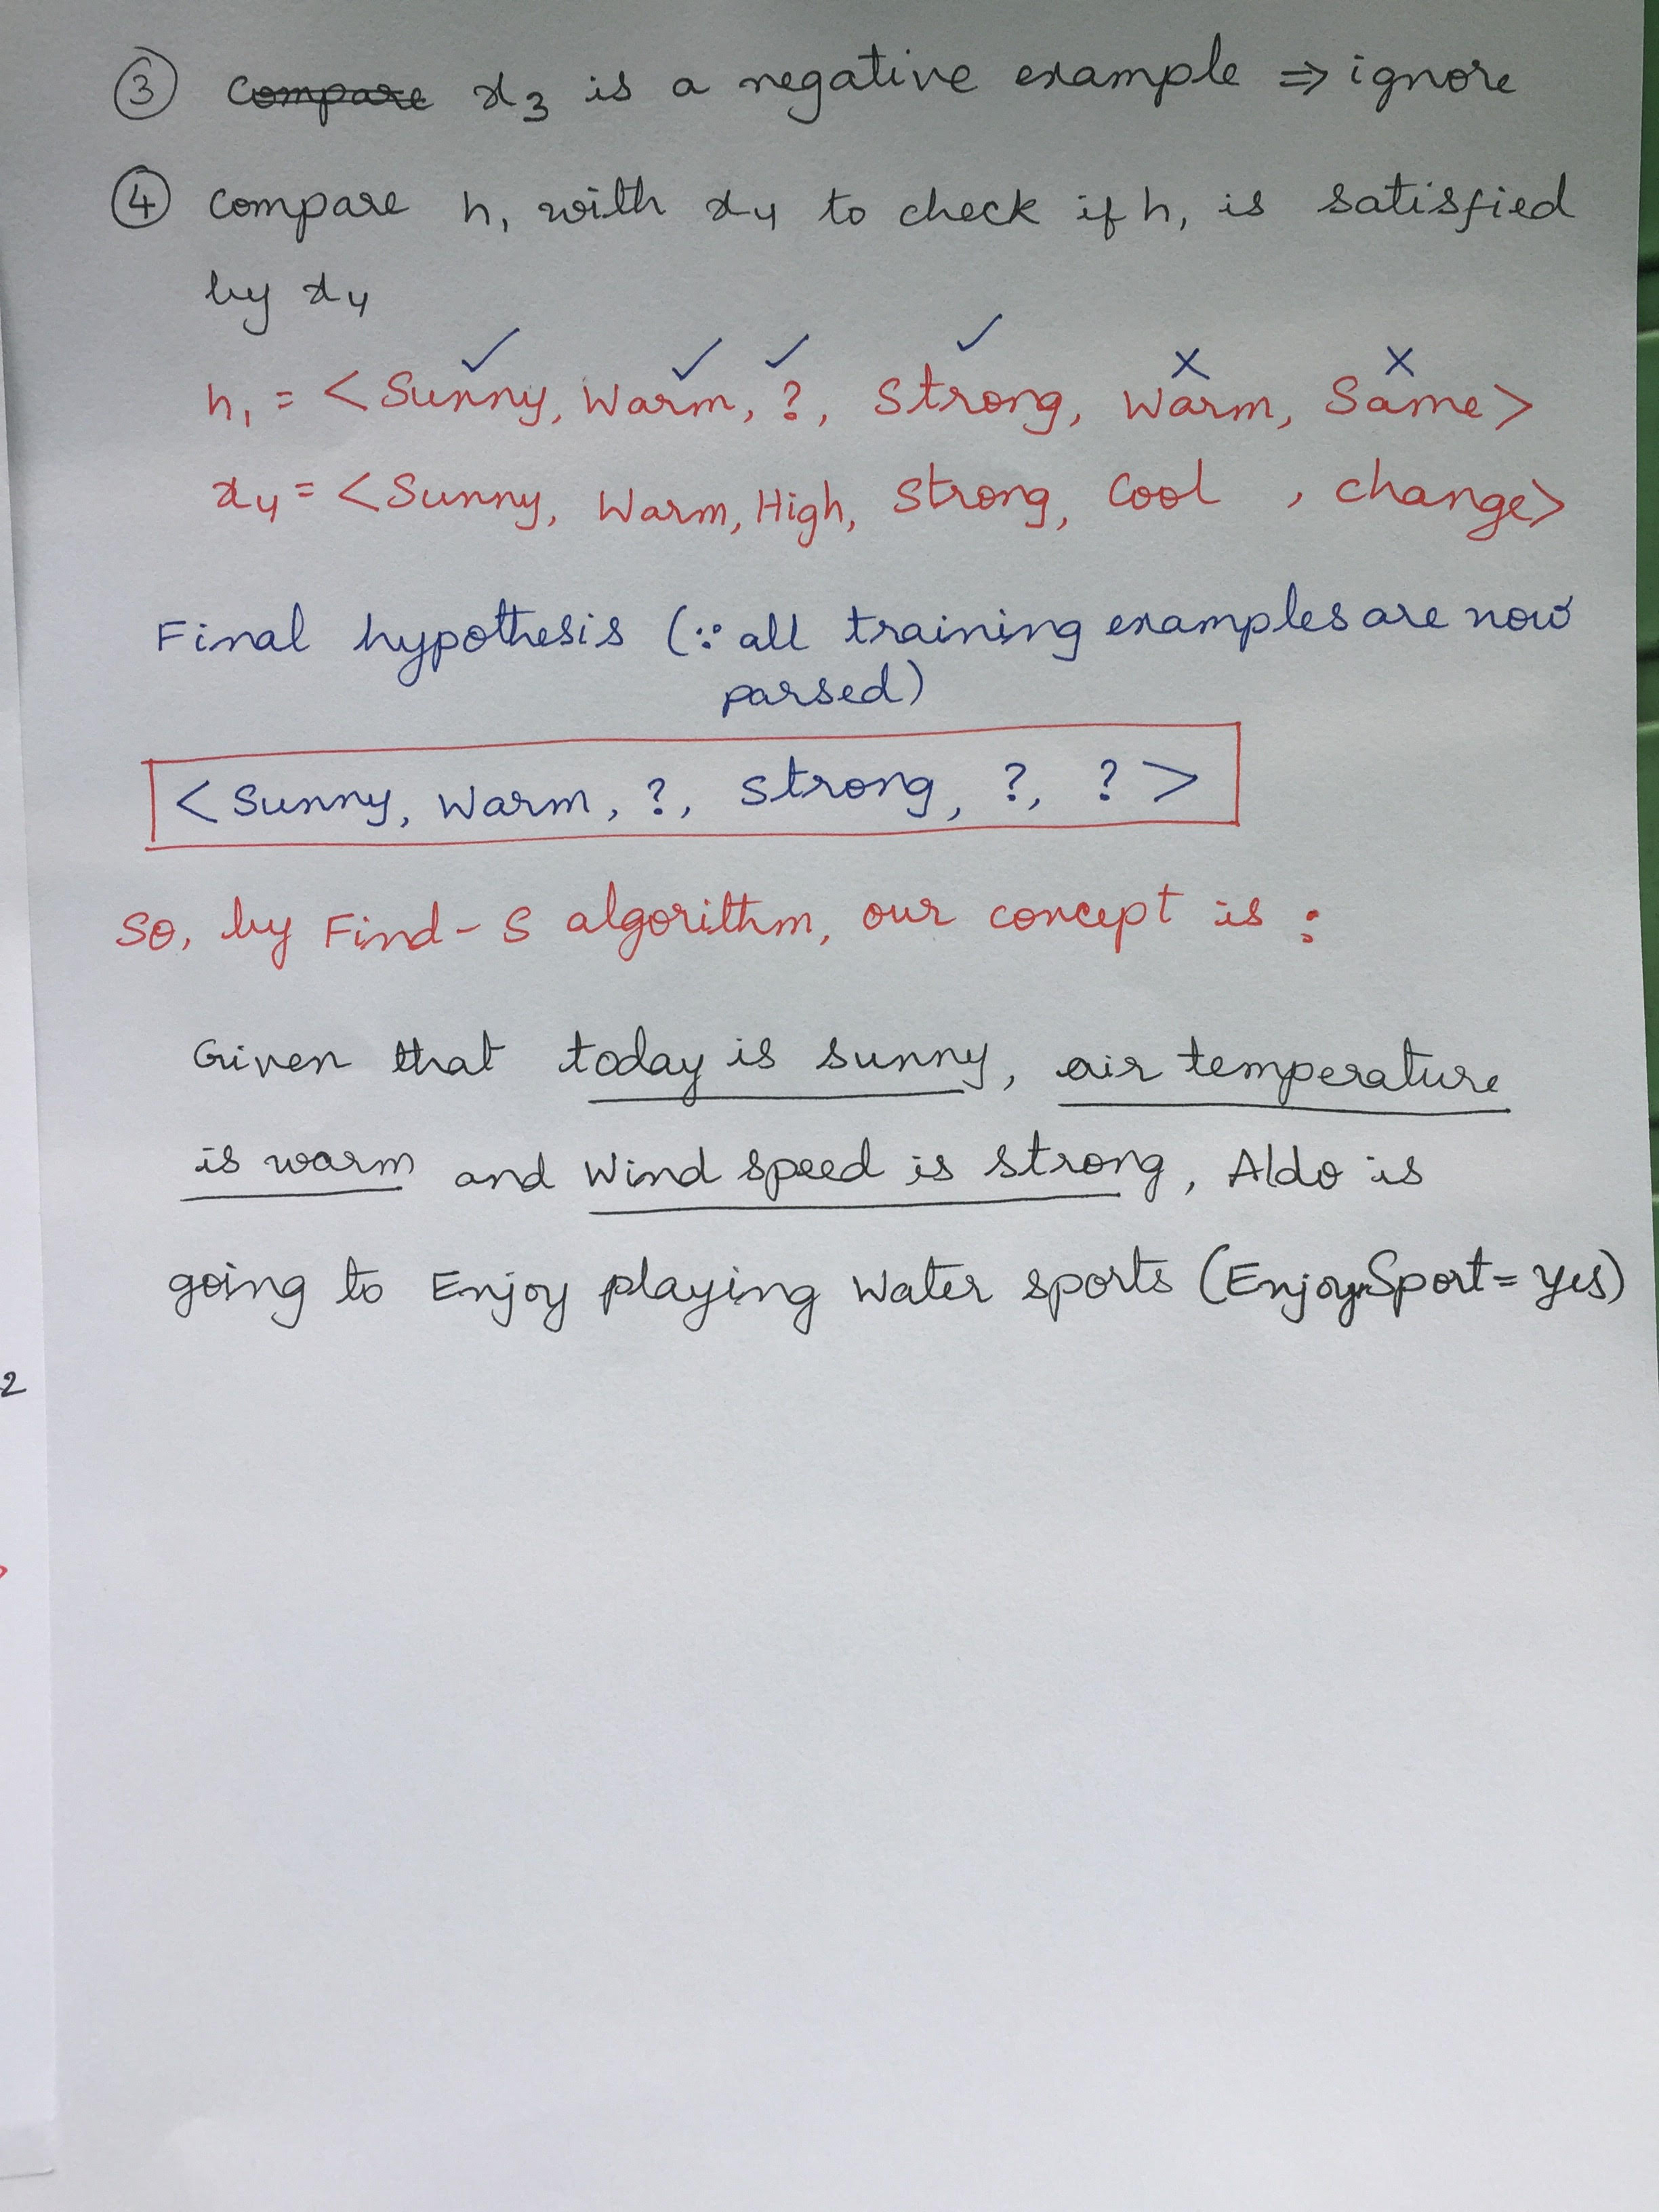 ③ Compare x3 is a negative example ⇒ ignore
④ Compare h1 with x4 to check if h1 is satisfied
by x4
✓ ✓ ✓ ✓ x x
h1 = <Sunny, Warm, ?, Strong, Warm, Same>
x4 = <Sunny, Warm, High, Strong, Cool , change>
Final hypothesis (∵ all training examples are now
parsed)
<Sunny, Warm, ?, Strong, ?, ?>
So, by Find-S algorithm, our concept is :
Given that today is sunny, air temperature
is warm and Wind speed is strong, Aldo is
going to Enjoy playing Water sports (EnjoySport = yes)
2